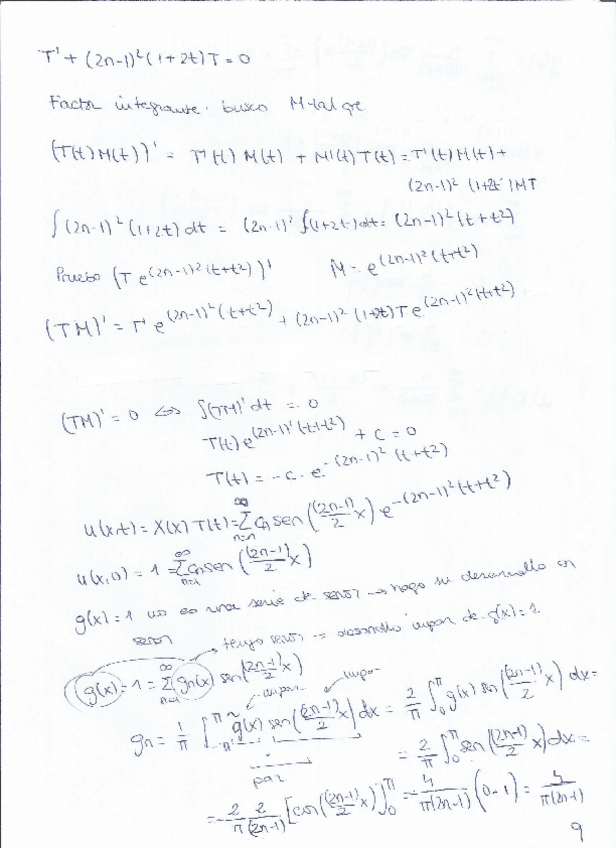 T' + (2n-1)²(1+2t)T = 0
Factor integrante: busco M tal que
(T(t)M(t))' = T'(t)M(t) + M'(t)T(t) = T'(t)M(t) +
(2n-1)² (1+2t)MT
∫(2n-1)²(1+2t)dt = (2n-1)² ∫(1+2t)dt = (2n-1)²(t+t²)
Pruebo (T e^(2n-1)²(t+t²))' M = e^(2n-1)²(t+t²)
(TM)' = T' e^(2n-1)²(t+t²) + (2n-1)² (1+2t)T e^(2n-1)²(t+t²)
(TM)' = 0 ⇔ ∫(TM)' dt = 0
T(t)e^(2n-1)²(t+t²) + c = 0
T(t) = -c · e^-(2n-1)²(t+t²)
u(x,t) = X(x)T(t) = Σ cn sen((2n-1)/2 x) e^-(2n-1)²(t+t²)
u(x,0) = 1 = Σ cn sen((2n-1)/2 x)
g(x)=1 no es una serie de senos → hago su desarrollo en
senos → tengo senos → desarrollo impar de g(x)=1.
g(x) = 1 = Σ gn(x) sen((2n-1)/2 x)
impar impar
gn = 1/π ∫_-π^π g̃(x) sen((2n-1)/2 x) dx = 2/π ∫_0^π g(x) sen((2n-1)/2 x) dx =
par
= 2/π ∫_0^π sen((2n-1)/2 x) dx =
= -2/π 2/(2n-1) [cos((2n-1)/2 x)]_0^π = -4/π(2n-1) (0-1) = 4/π(2n-1)
9